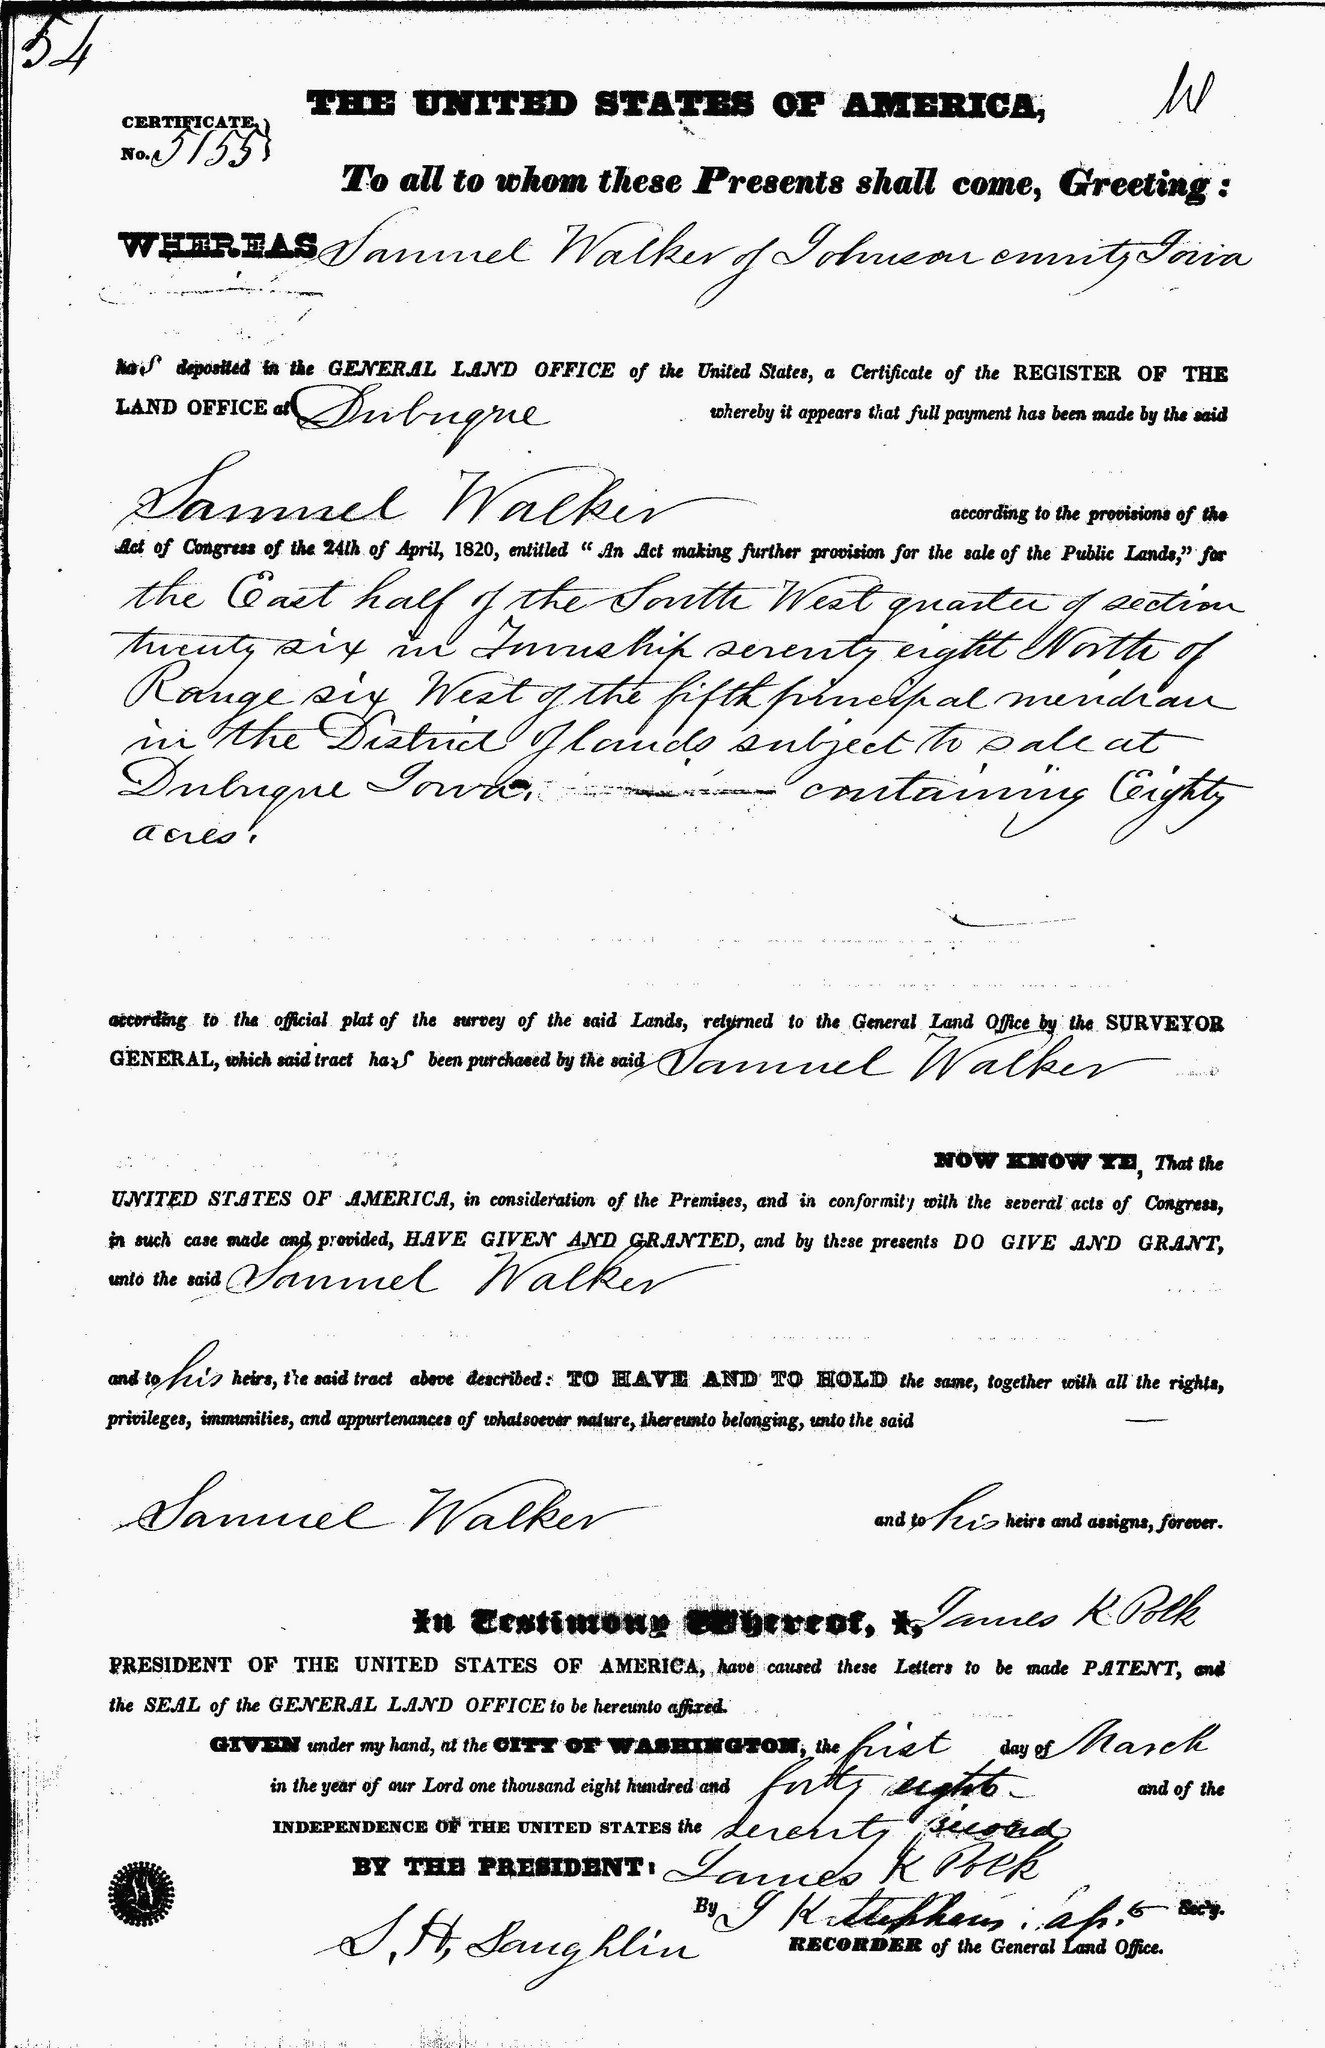 54
THE UNITED STATES OF AMERICA,
CERTIFICATE
No. 5155
To all to whom these Presents shall come, Greeting:
WHEREAS Samuel Walker of Johnson county Iowa
has deposited in the GENERAL LAND OFFICE of the United States, a Certificate of the REGISTER OF THE
LAND OFFICE at Dubuque whereby it appears that full payment has been made by the said
Samuel Walker according to the provisions of the
Act of Congress of the 24th of April, 1820, entitled “An Act making further provision for the sale of the Public Lands,” for
the East half of the South West quarter of section
twenty six in Township seventy eight North of
Range six West of the fifth principal meridian
in the District of lands subject to sale at
Dubuque Iowa. containing Eighty
acres.
according to the official plat of the survey of the said Lands, returned to the General Land Office by the SURVEYOR
GENERAL, which said tract has been purchased by the said Samuel Walker
NOW KNOW YE, That the
UNITED STATES OF AMERICA, in consideration of the Premises, and in conformity with the several acts of Congress,
in such case made and provided, HAVE GIVEN AND GRANTED, and by these presents DO GIVE AND GRANT,
unto the said Samuel Walker
and to his heirs, the said tract above described: TO HAVE AND TO HOLD the same, together with all the rights,
privileges, immunities, and appurtenances of whatsoever nature, thereunto belonging, unto the said
Samuel Walker and to his heirs and assigns, forever.
In Testimony Whereof, I, James K Polk
PRESIDENT OF THE UNITED STATES OF AMERICA, have caused these Letters to be made PATENT, and
the SEAL of the GENERAL LAND OFFICE to be hereunto affixed.
GIVEN under my hand, at the CITY OF WASHINGTON, the first day of March
in the year of our Lord one thousand eight hundred and forty eight and of the
INDEPENDENCE OF THE UNITED STATES the seventy second
BY THE PRESIDENT: James K Polk
By J K Stephens, Sec'y.
S. H. Laughlin RECORDER of the General Land Office.